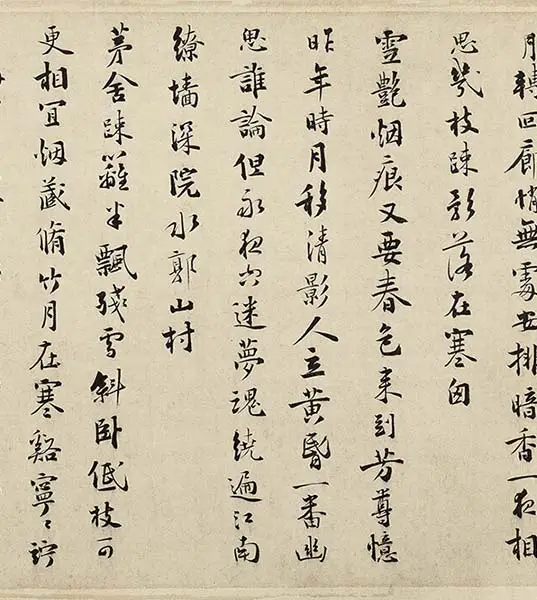 月轉回廊悄無處安排暗香一夜相
思幾枝疎影落在寒囱
雪艷烟痕又要春色來到芳尊憶
昨年時月移清影人立黃昏一番幽
思誰論但永夜空迷夢魂繞遍江南
繚墻深院水郭山村
茅舍疎籬半飄殘雪斜卧低枝可
更相宜烟藏脩竹月在寒谿寧〻竚